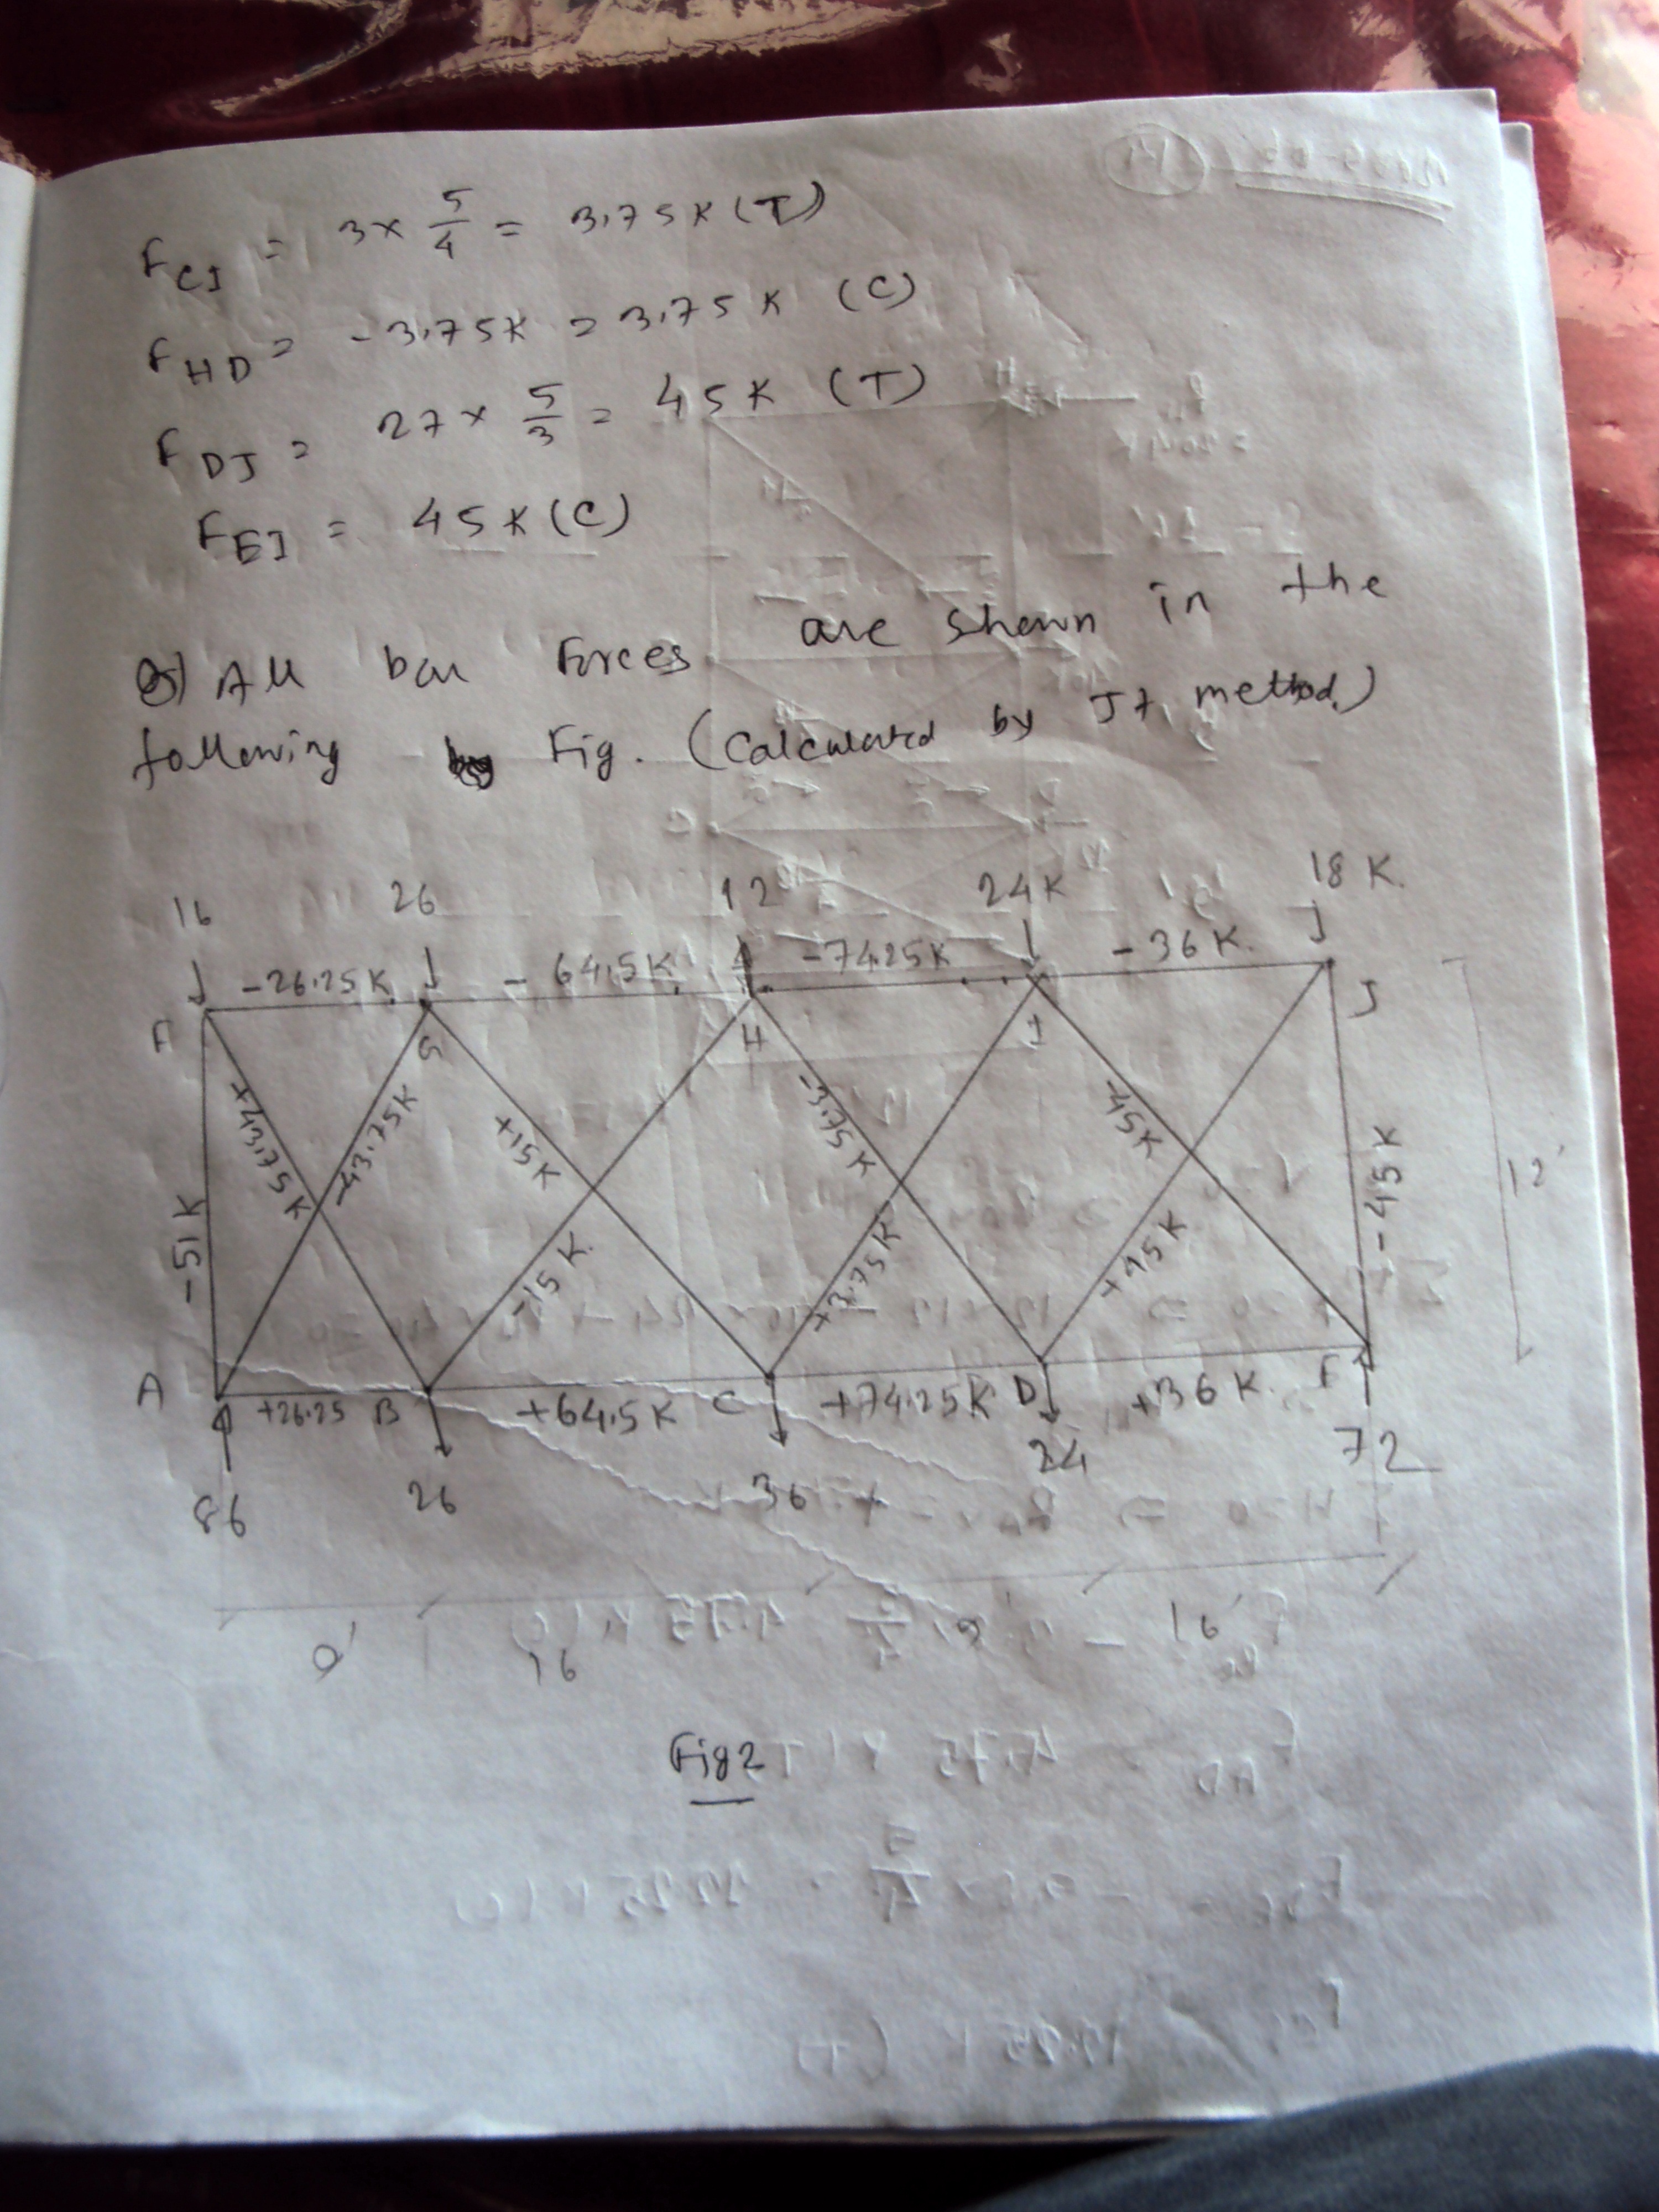 F CI = 3 x 5/4 = 3.75 K (T)
F HD = -3.75K = 3.75 K (C)
F DJ = 27 x 5/3 = 45 K (T)
F EI = 45 K (C)
All bar Forces are shown in the
following Fig. (Calculated by Jt method.)
16 26 12 24K 18 K.
-26.25K - 64.5K -74.25K - 36 K.
F G H I J
+43.75 K -43.75K +15 K -3.75 K -45K
-51 K -15 K. +3.75K +45K -45 K 12'
A +26.25 B +64.5K C +74.25K D +36 K.
86 26 36 24 72
9' 16 9' 16'
Fig 2